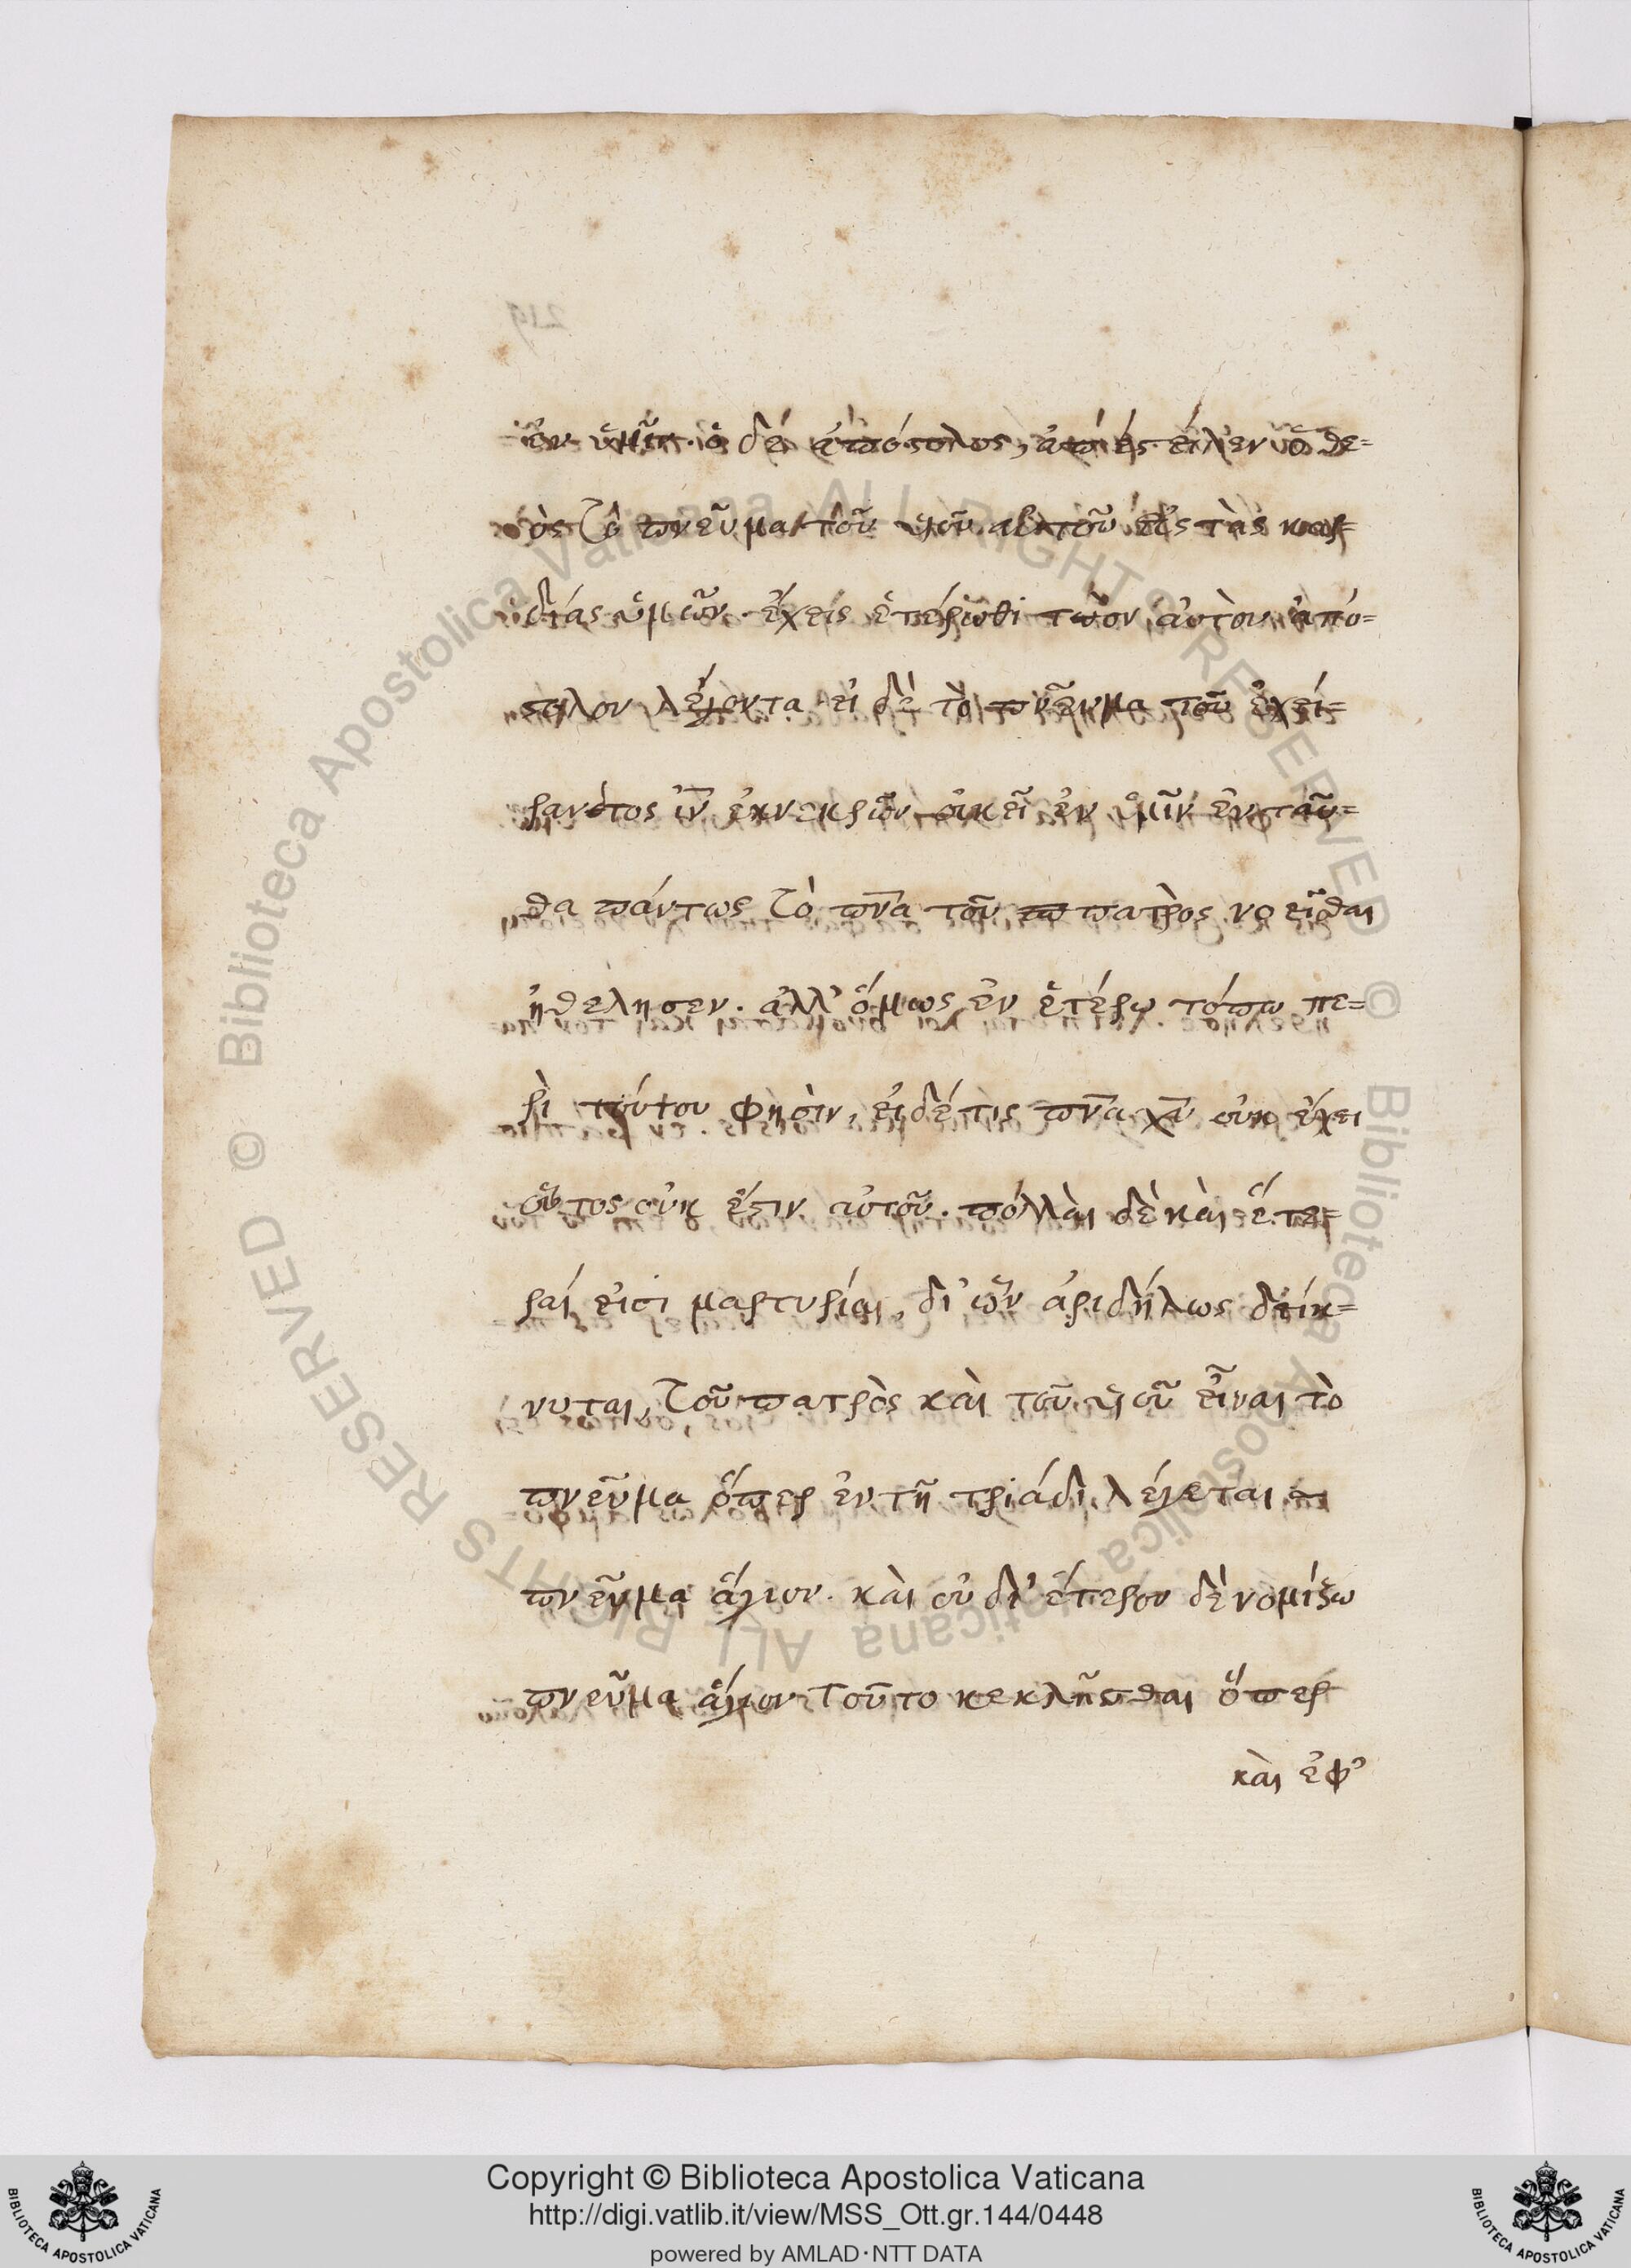 ἐν ὑμῖν. ὁ δὲ ἀπόστολος, ἀπέστειλεν ὁ θε=
ὸς τὸ πνεῦμα τοῦ υἱοῦ αὐτοῦ εἰς τὰς καρ=
δίας ὑμῶν. ἔχεις ἑτέρωθι τὸν αὐτὸν ἀπό=
στολον λέγοντα εἰ δὲ τὸ πνεῦμα τοῦ ἐγεί=
ραντος ἰν̅ ἐκ νεκρῶν οἰκεῖ ἐν ὑμῖν ἐνταῦ=
θα πάντως τὸ πν̅α τοῦ πατρὸς νοεῖσθαι
ἠθέλησεν. ἀλλ' ὅμως ἐν ἑτέρω τόπω πε=
ρὶ τούτου φησὶν, εἰ δέ τις πν̅α χ̅υ οὐκ ἔχει
οὗτος οὐκ ἔστιν αὐτοῦ. πολλὰι δὲ κὰι ἕτε=
ραί εἰσι μαρτυρίαι, δι' ὧν ἀριδήλως δείκ=
νυται, τοῦ πατρὸς κὰι τοῦ υἱοῦ εἶναι τὸ
πνεῦμα ὅπερ ἐν τῆ τριάδι λέγεται
πνεῦμα ἅγιον. κὰι οὐ δι' ἕτερον δὲ νομίζω
πνεῦμα ἅγιον τοῦτο κεκλῆσθαι ὅπερ
κὰι ἐφ'
219
Copyright © Biblioteca Apostolica Vaticana
http://digi.vatlib.it/view/MSS_Ott.gr.144/0448
powered by AMLAD·NTT DATA
BIBLIOTECA APOSTOLICA VATICANA
BIBLIOTECA APOSTOLICA VATICANA
© Biblioteca Apostolica Vaticana ALL RIGHTS RESERVED
© Biblioteca Apostolica Vaticana ALL RIGHTS RESERVED